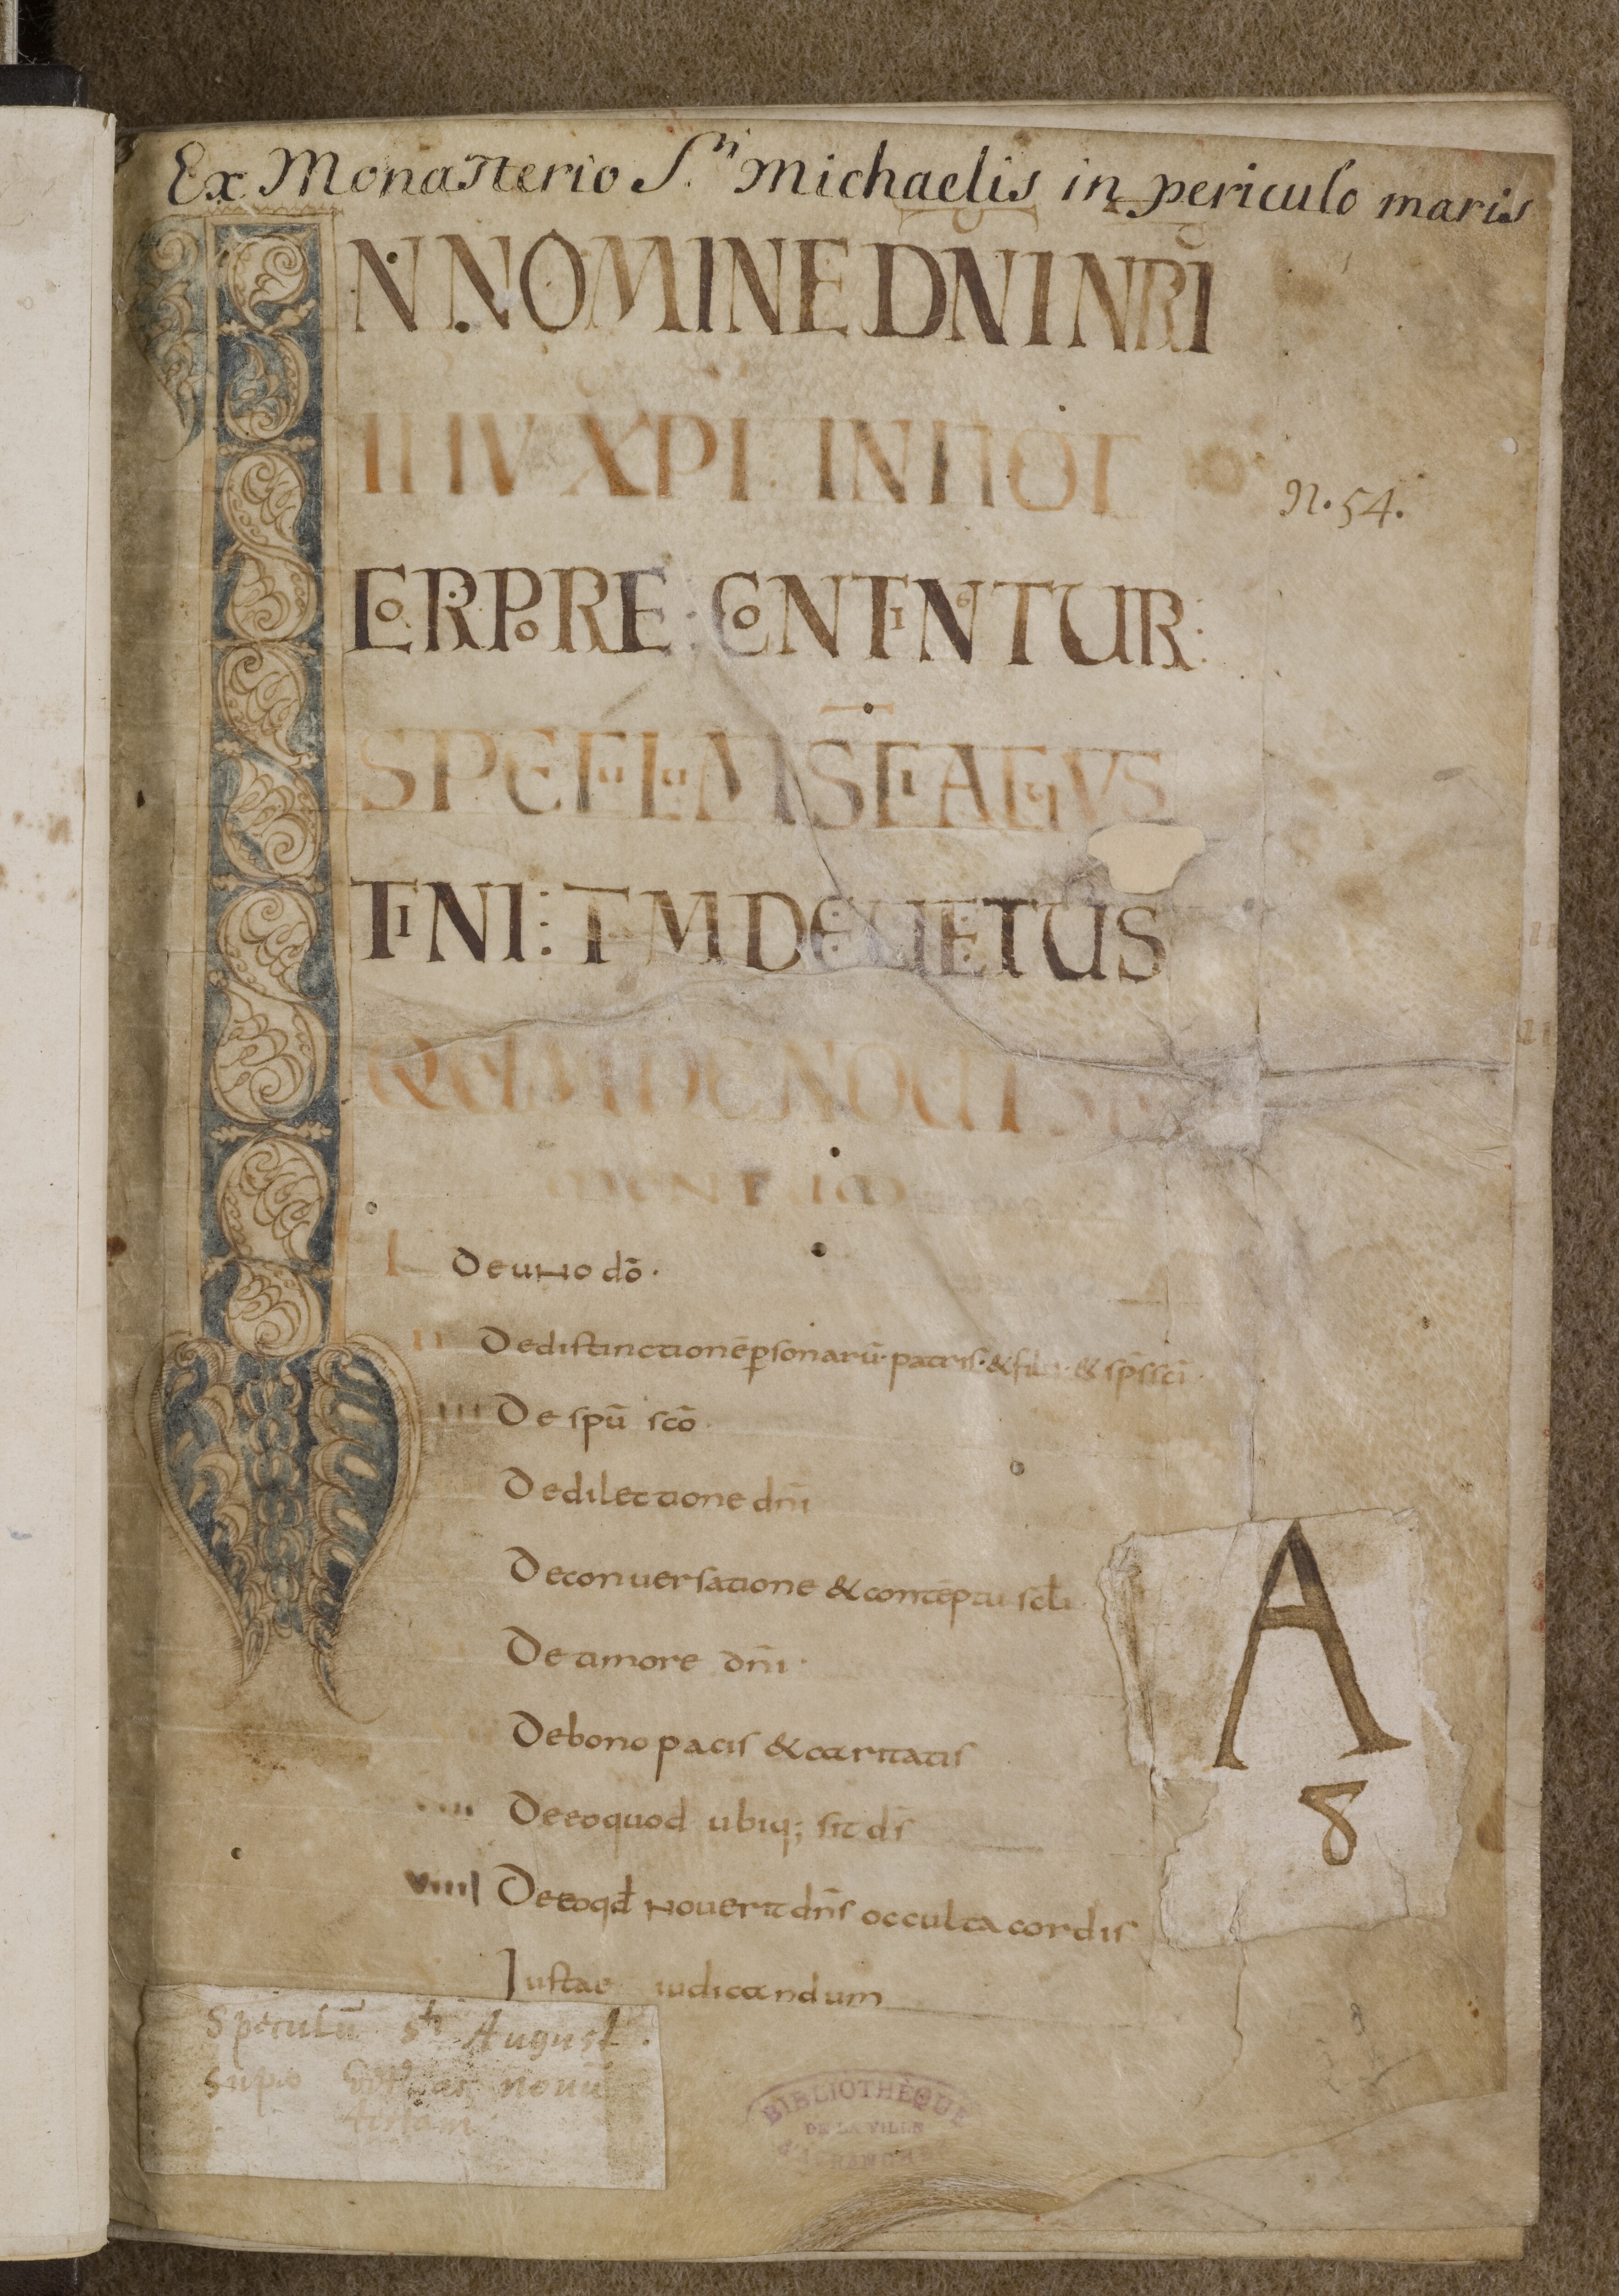 Ex Monasterio S.ti Michaelis in periculo maris
IN NOMINE DN̄I NR̄I
IHV XPI IN HOC
CORPORE CONTINENTUR
SPECULUM SCI AUGUS
TINI: TAM DE UETUS
QUAM DE NOUI
N. 54.
I De uno dō.
II De distinctionē ꝑsonarū patris & filii & sp̄s sc̄i
III De spū scō
De dilectione dn̄i
De conuersatione & contēptu scl̄i
De amore dn̄i.
De bono pacis & caritatis
De eo quod ubiq; sit ds̄
VIIII De eo qđ nouerit dn̄s occulta cordis
Iustae iudicandum
A
8
Speculū s.ti August.
nouū
BIBLIOTHÈQUE
DE LA VILLE
D'AVRANCHES